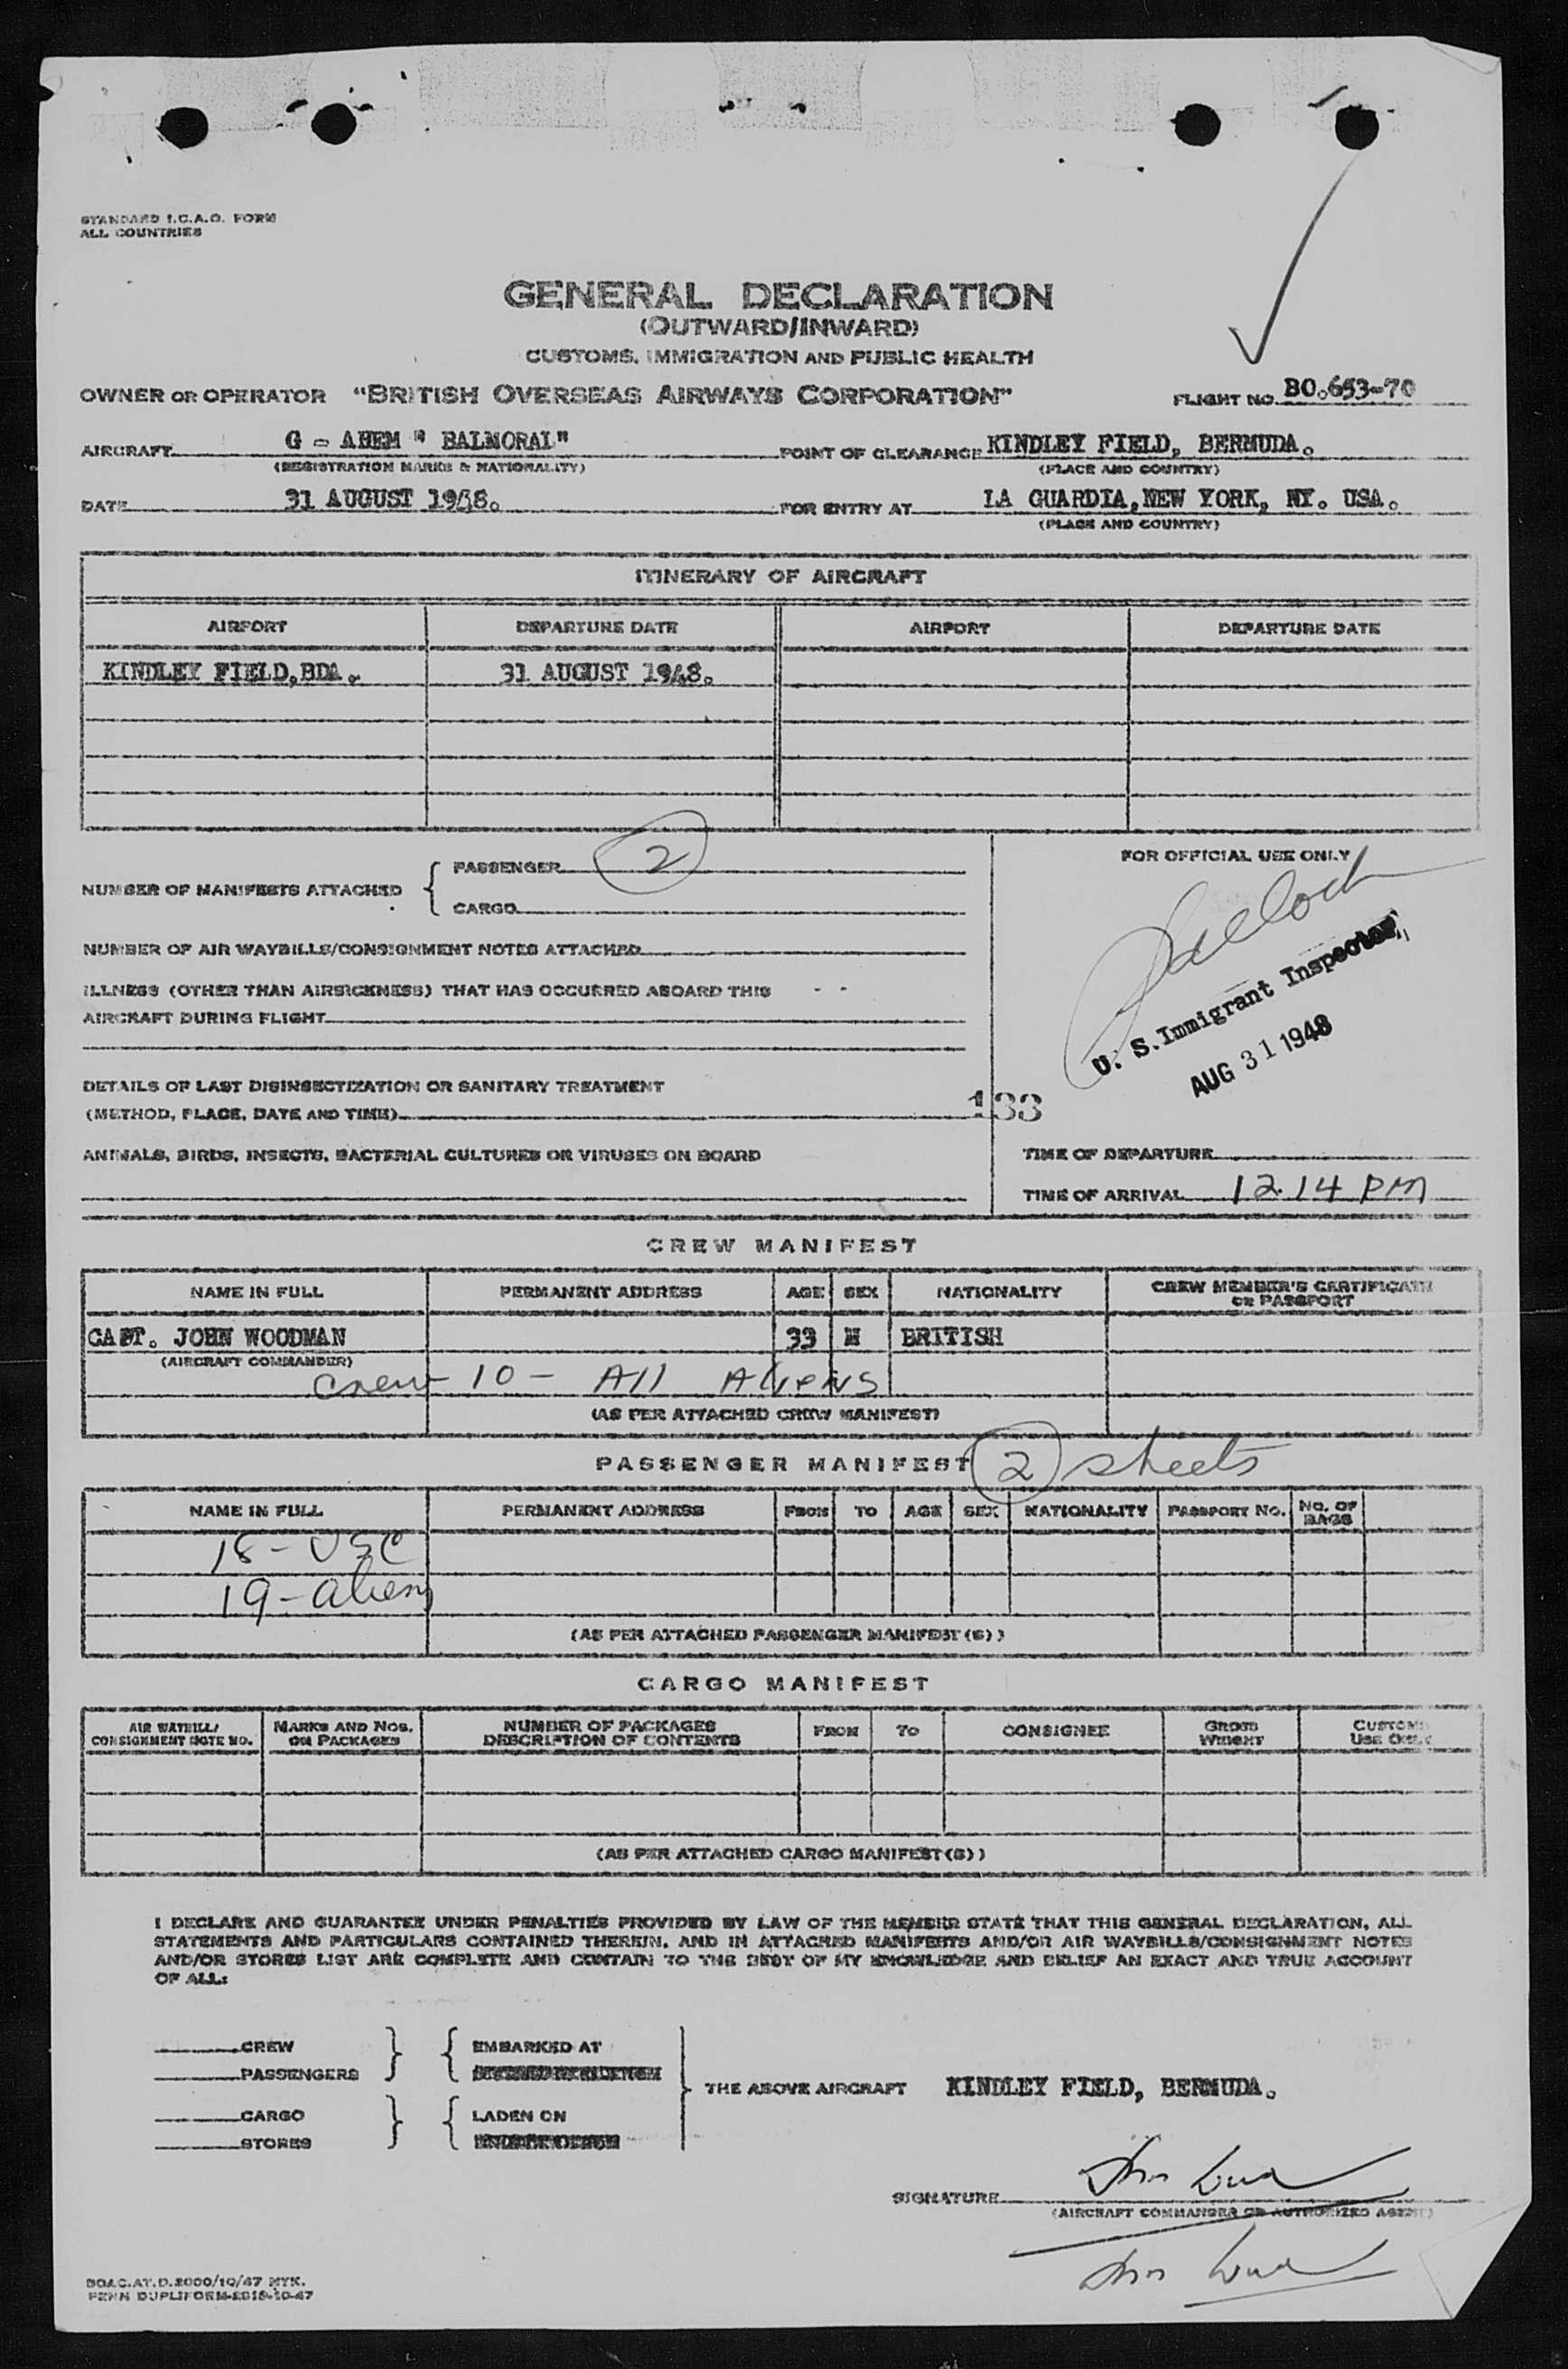 STANDARD I.C.A.O. FORM
ALL COUNTRIES
GENERAL DECLARATION
(OUTWARD/INWARD)
CUSTOMS, IMMIGRATION AND PUBLIC HEALTH
OWNER OR OPERATOR "BRITISH OVERSEAS AIRWAYS CORPORATION" FLIGHT NO. BO.653-70
AIRCRAFT G - AHEM " BALMORAL" POINT OF CLEARANCE KINDLEY FIELD, BERMUDA.
(REGISTRATION MARKS & NATIONALITY) (PLACE AND COUNTRY)
DATE 31 AUGUST 1948. FOR ENTRY AT LA GUARDIA, NEW YORK, NY. USA.
(PLACE AND COUNTRY)
ITINERARY OF AIRCRAFT
AIRPORT DEPARTURE DATE AIRPORT DEPARTURE DATE
KINDLEY FIELD, BDA. 31 AUGUST 1948.
NUMBER OF MANIFESTS ATTACHED { PASSENGER 2
CARGO
FOR OFFICIAL USE ONLY
NUMBER OF AIR WAYBILLS/CONSIGNMENT NOTES ATTACHED
ILLNESS (OTHER THAN AIRSICKNESS) THAT HAS OCCURRED ABOARD THIS - -
AIRCRAFT DURING FLIGHT
U. S. Immigrant Inspector
AUG 31 1948
DETAILS OF LAST DISINSECTIZATION OR SANITARY TREATMENT
(METHOD, PLACE, DATE AND TIME) 133
ANIMALS, BIRDS, INSECTS, BACTERIAL CULTURES OR VIRUSES ON BOARD
TIME OF DEPARTURE
TIME OF ARRIVAL 12.14 PM
CREW MANIFEST
NAME IN FULL PERMANENT ADDRESS AGE SEX NATIONALITY CREW MEMBER'S CERTIFICATE
OR PASSPORT
CAPT. JOHN WOODMAN 33 M BRITISH
(AIRCRAFT COMMANDER)
Crew 10 - All Aliens
(AS PER ATTACHED CREW MANIFEST)
PASSENGER MANIFEST 2 sheets
NAME IN FULL PERMANENT ADDRESS FROM TO AGE SEX NATIONALITY PASSPORT NO. NO. OF BAGS
18 - USC
19 - aliens
(AS PER ATTACHED PASSENGER MANIFEST (S) )
CARGO MANIFEST
AIR WAYBILL/ MARKS AND NOS. NUMBER OF PACKAGES FROM TO CONSIGNEE GROSS CUSTOMS
CONSIGNMENT NOTE NO. ON PACKAGES DESCRIPTION OF CONTENTS WEIGHT USE ONLY
(AS PER ATTACHED CARGO MANIFEST (S) )
I DECLARE AND GUARANTEE UNDER PENALTIES PROVIDED BY LAW OF THE MEMBER STATE THAT THIS GENERAL DECLARATION, ALL
STATEMENTS AND PARTICULARS CONTAINED THEREIN, AND IN ATTACHED MANIFESTS AND/OR AIR WAYBILLS/CONSIGNMENT NOTES
AND/OR STORES LIST ARE COMPLETE AND CONTAIN TO THE BEST OF MY KNOWLEDGE AND BELIEF AN EXACT AND TRUE ACCOUNT
OF ALL:
CREW } { EMBARKED AT
PASSENGERS
THE ABOVE AIRCRAFT KINDLEY FIELD, BERMUDA.
CARGO } { LADEN ON
STORES
SIGNATURE
(AIRCRAFT COMMANDER OR AUTHORIZED AGENT)
BOAC.AT.D.2000/10/47 NYK.
PENN DUPLIFORM-2818-10-47